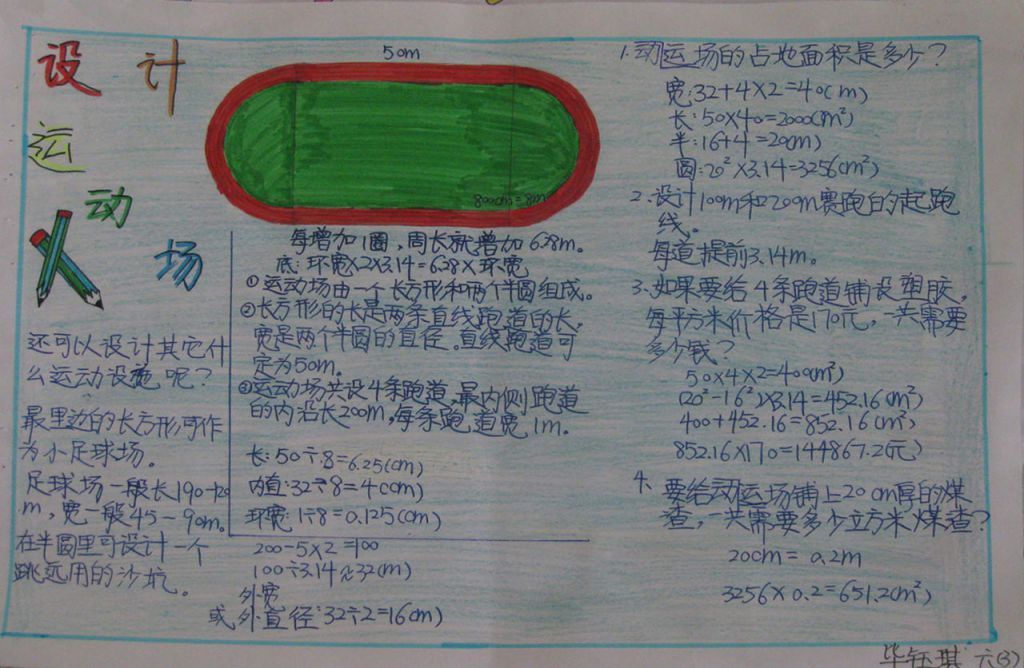 设计
运
动
场
50m
800cm=8m
每增加1圈，周长就增加6.28m。
底：环宽×2×3.14=6.28×环宽
①运动场由一个长方形和两个半圆组成。
②长方形的长是两条直线跑道的长，
宽是两个半圆的直径。直线跑道可
定为50m。
③运动场共设4条跑道，最内侧跑道
的内沿长200m，每条跑道宽1m。
长：50÷8=6.25(cm)
内直：32÷8=4(cm)
环宽：1÷8=0.125(cm)
200-5×2=100
100÷3.14≈32(m)
外宽
或外直径：32÷2=16(m)
还可以设计其它什
么运动设施呢？
最里边的长方形可作
为小足球场。
足球场一般长190-120
m，宽一般45-90m。
在半圆里可设计一个
跳远用的沙坑。
1.动运场的占地面积是多少？
宽：32+4×2=40(m)
长：50×40=2000(m²)
半：16+4=20(m)
圆：20²×3.14=3256(m²)
2.设计100m和200m赛跑的起跑
线。
每道提前3.14m。
3.如果要给4条跑道铺设塑胶，
每平方米价格是170元，一共需要
多少钱？
50×4×2=400(m²)
(20²-16²)×3.14=452.16(m²)
400+452.16=852.16(m²)
852.16×170=144867.2(元)
4.要给动运场铺上20cm厚的煤
渣，一共需要多少立方米煤渣？
20cm=0.2m
3256×0.2=651.2(m³)
毕钰琪 六(3)